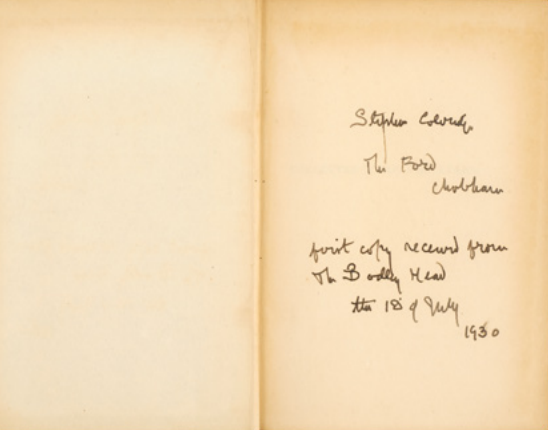 Stephen Coleridge.
The Ford
Chobham
first copy received from
The Bodley Head
the 18 of July
1930